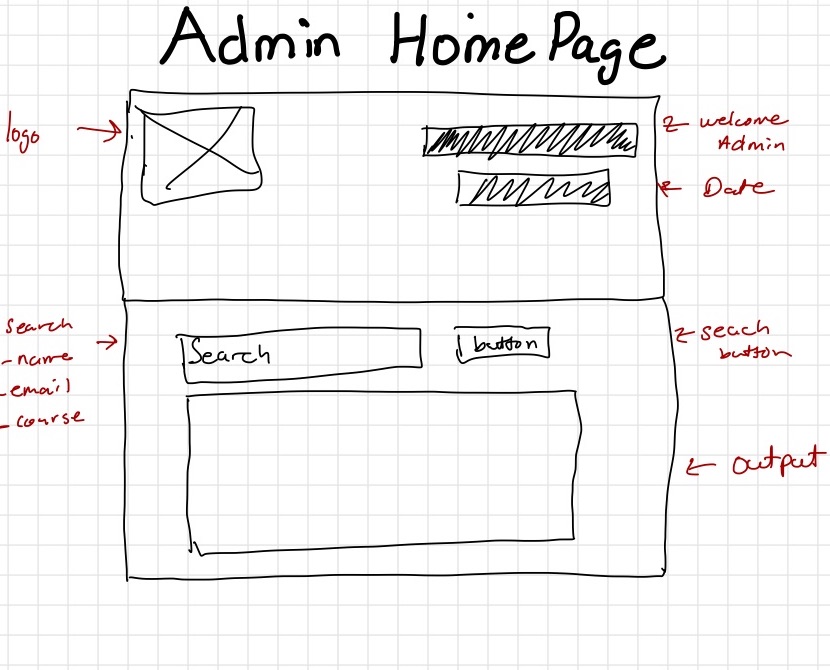 Admin Home Page
logo
welcome
Admin
Date
Search
-name
-email
-course
Search
button
seach
button
output